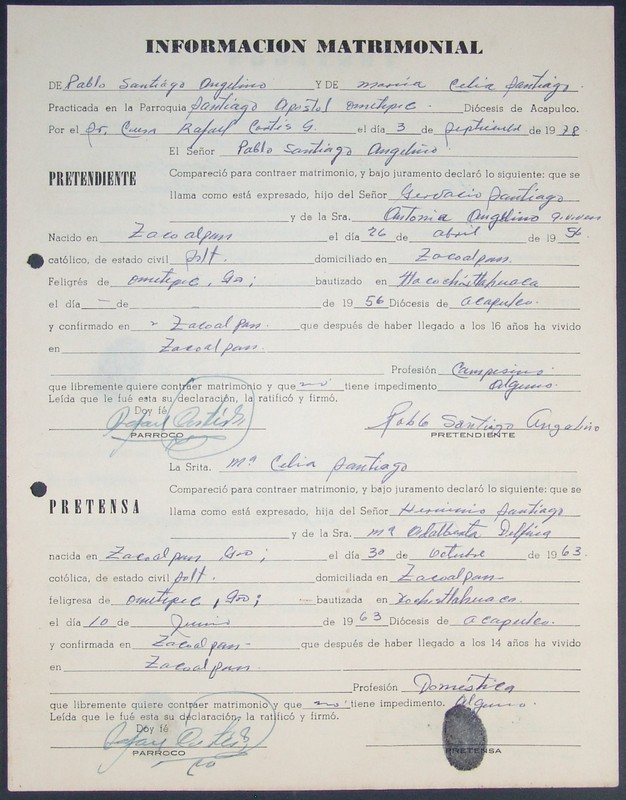 INFORMACION MATRIMONIAL
DE Pablo Santiago Angelino Y DE maria Celia Santiago.
Practicada en la Parroquia Santiago Apostol Ometepec. Diócesis de Acapulco.
Por el Sr. Cura Rafael Cortés G. el día 3 de Septiembre de 1978.
El Señor Pablo Santiago Angelino.
PRETENDIENTE
Compareció para contraer matrimonio, y bajo juramento declaró lo siguiente: que se
llama como está expresado, hijo del Señor Gervacio Santiago
y de la Sra. Antonia Angelino
Nacido en Zacoalpan el día 26 de abril de 1956
católico, de estado civil solt. domiciliado en Zacoalpan.
Feligrés de Ometepec, Gro; bautizado en
el día — de de 1956 Diócesis de Acapulco.
y confirmado en Zacoalpan. que después de haber llegado a los 16 años ha vivido
en Zacoalpan.
Profesión Campesino
que libremente quiere contraer matrimonio y que no tiene impedimento Alguno.
Leída que le fué esta su declaración, la ratificó y firmó.
Doy fé
Rafael Cortés G
PARROCO
Pablo Santiago Angelino
PRETENDIENTE
La Srita. Mª Celia Santiago
PRETENSA
Compareció para contraer matrimonio, y bajo juramento declaró lo siguiente: que se
llama como está expresado, hijo del Señor Herminio Santiago
y de la Sra. Mª Adalberta Delfina
nacida en Zacoalpan, Gro; el día 30 de Octubre de 1963.
católica, de estado civil solt. domiciliada en Zacoalpan
feligresa de Ometepec, Gro; — bautizada en Xochistlahuaca.
el día 10 de Junio de 1963 Diócesis de Acapulco.
y confirmada en Zacoalpan que después de haber llegado a los 14 años ha vivido
en Zacoalpan.
Profesión Doméstica
que libremente quiere contraer matrimonio y que no tiene impedimento. Alguno.
Leída que le fué esta su declaración, la ratificó y firmó.
Doy fé
Rafael Cortés G
PARROCO
PRETENSA